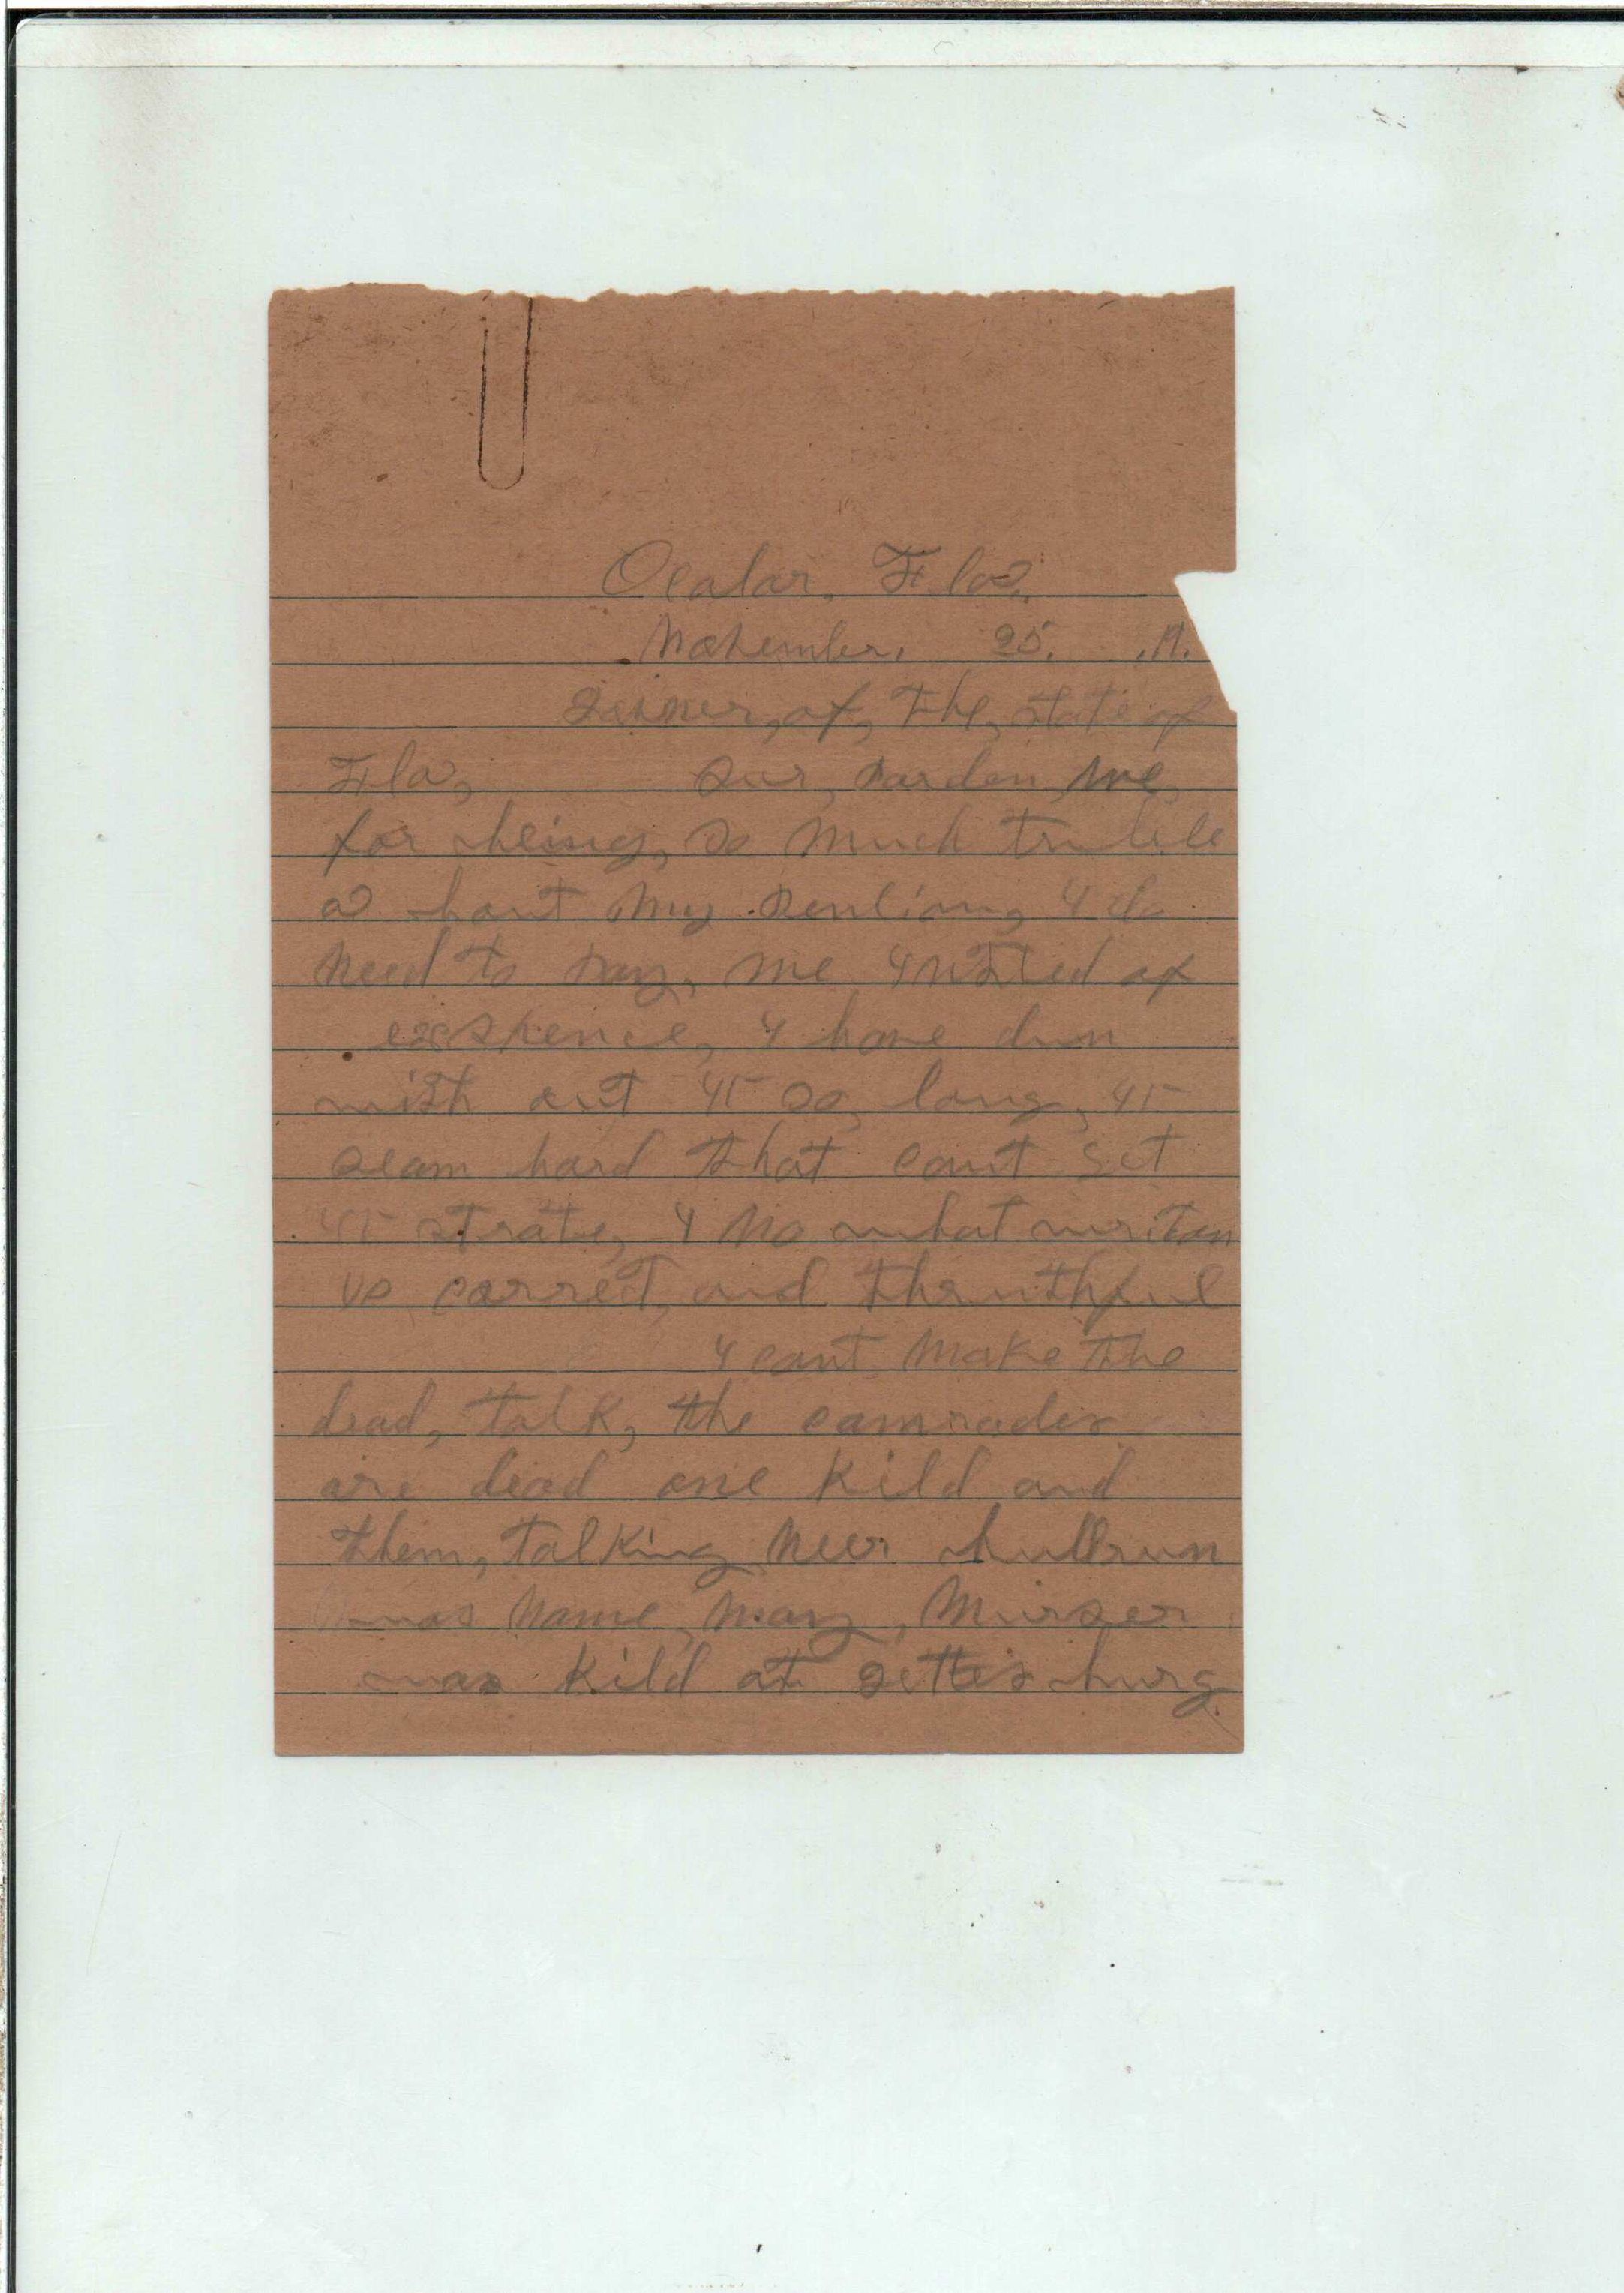 Ocalar. Fla.
November. 25. .A.
of, the, state of
Fla, Sur, pardon me,
for being, so much trubble
a bout my penlion, I do
need to pay, me
I have dun
with out it so, long, it
seam hard that cant set
it strate, I no what writen
is corret, and thruthful
I cant make the
dead, talk, the camrades
are dead one kild and
them, talking neer bullrun
was name, may,
was kild at gettesburg